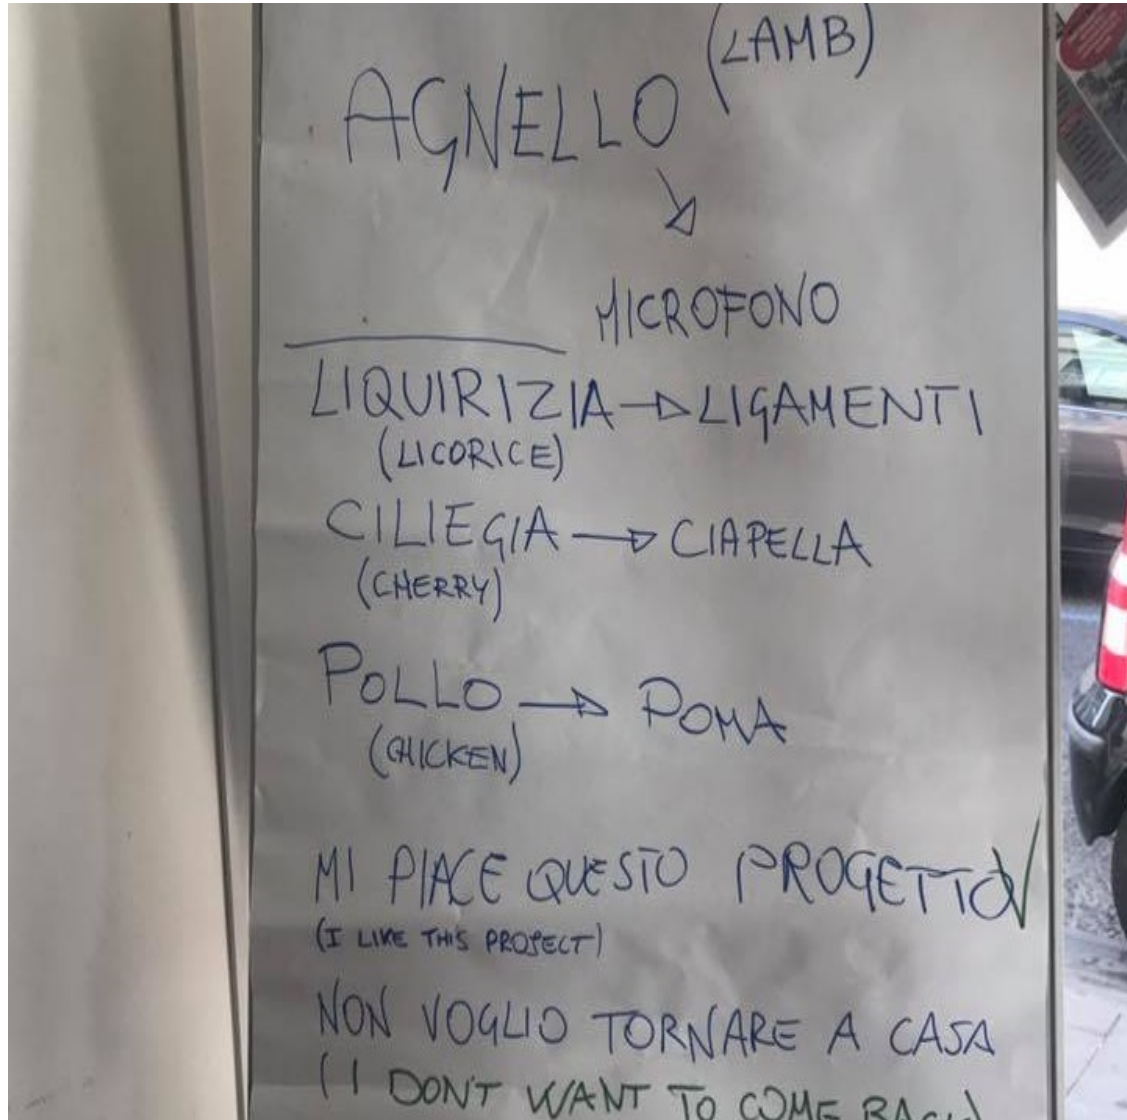 (LAMB)
AGNELLO
MICROFONO
LIQUIRIZIA → LIGAMENTI
(LICORICE)
CILIEGIA → CIAPELLA
(CHERRY)
POLLO → POMA
(CHICKEN)
MI PIACE QUESTO PROGETTO
(I LIKE THIS PROJECT)
NON VOGLIO TORNARE A CASA
(I DON'T WANT TO COME BACK)